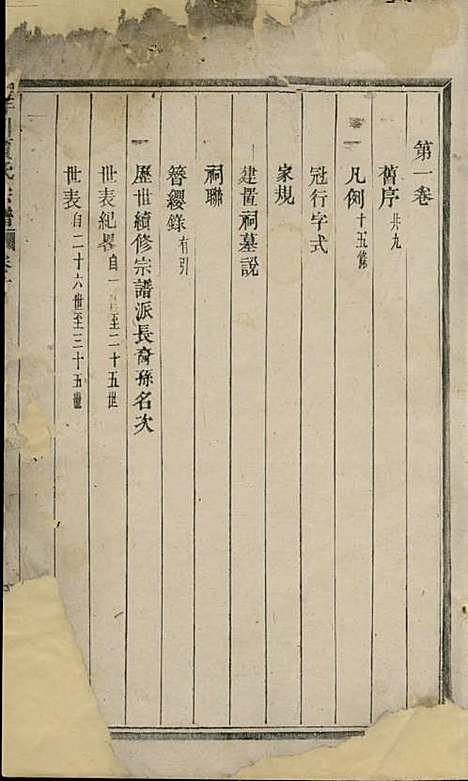 第一卷
舊序 廾九
凡例 十五條
冠行字式
家規
建置祠墓說
祠聯
簪纓錄 有引
歷世續修宗譜派長裔孫名次
世表紀畧 自一世至二十五世
世表 自二十六世至三十五世
氏宗譜